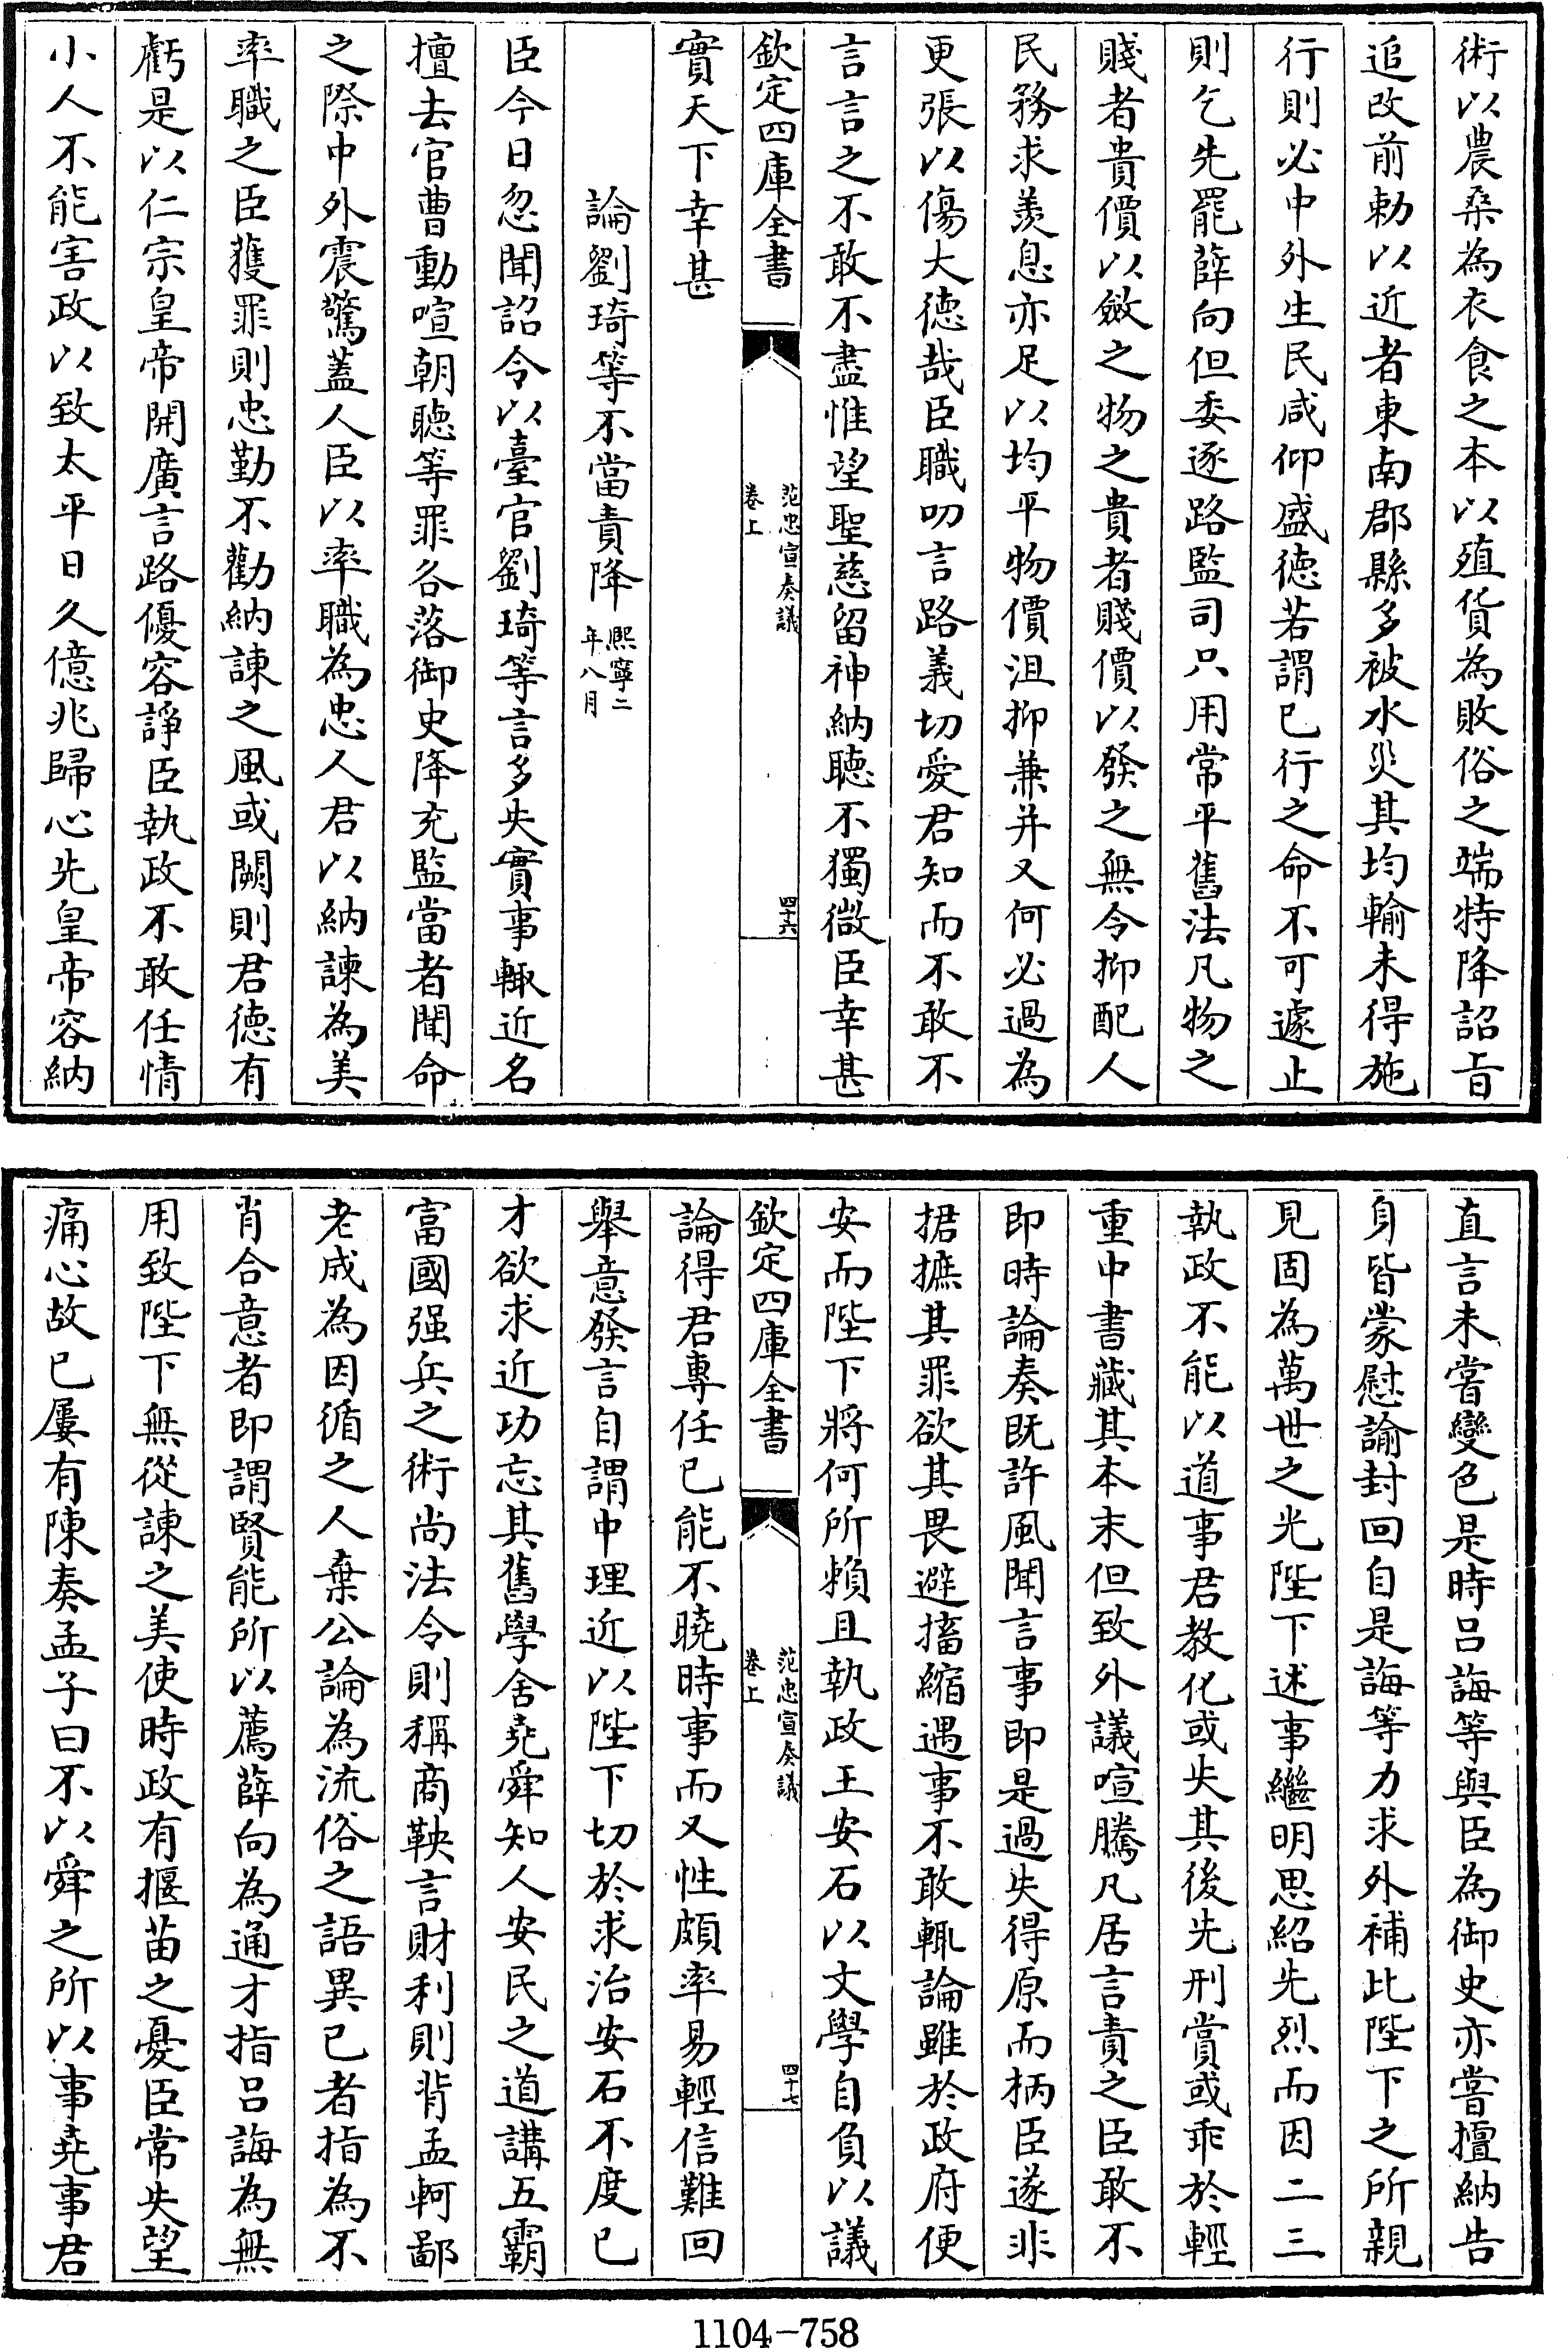 術以農桑為衣食之本以殖貨為敗俗之端特降詔旨
追改前勅以近者東南郡縣多被水災其均輸未得施
行則必中外生民咸仰盛徳若謂已行之命不可遽止
則乞先罷薛向但委逐路監司只用常平舊法凡物之
賤者貴價以斂之物之貴者賤價以發之無令抑配人
民務求羨息亦足以均平物價沮抑兼并又何必過為
更張以傷大徳哉臣職叨言路義切愛君知而不敢不
言言之不敢不盡惟望聖慈留神納聴不獨微臣幸甚
欽定四庫全書
范忠宣奏議
卷上
四十六
實天下幸甚
論劉琦等不當責降
熙寧二
年八月
臣今日忽聞詔令以臺官劉琦等言多失實事輒近名
擅去官曹動喧朝聴等罪各落御史降充監當者聞命
之際中外震驚蓋人臣以率職為忠人君以納諫為美
率職之臣獲罪則忠勤不勸納諫之風或闕則君徳有
虧是以仁宗皇帝開廣言路優容諍臣執政不敢任情
小人不能害政以致太平日久億兆歸心先皇帝容納
直言未嘗變色是時呂誨等與臣為御史亦嘗擅納告
身皆蒙慰諭封回自是誨等力求外補此陛下之所親
見固為萬世之光陛下述事繼明思紹先烈而因二三
執政不能以道事君教化或失其後先刑賞或乖於輕
重中書藏其本末但致外議喧騰凡居言責之臣敢不
即時論奏既許風聞言事即是過失得原而柄臣遂非
捃摭其罪欲其畏避搐縮遇事不敢輒論雖於政府便
安而陛下將何所頼且執政王安石以文學自負以議
欽定四庫全書
范忠宣奏議
卷上
四十七
論得君專任已能不曉時事而又性頗率易輕信難回
舉意發言自謂中理近以陛下切於求治安石不度已
才欲求近功忘其舊學舍堯舜知人安民之道講五霸
富國强兵之術尚法令則稱商鞅言財利則背孟軻鄙
老成為因循之人棄公論為流俗之語異已者指為不
肖合意者即謂賢能所以薦薛向為通才指呂誨為無
用致陛下無從諫之美使時政有揠苗之憂臣常失望
痛心故已屢有陳奏孟子曰不以舜之所以事堯事君
1104-758